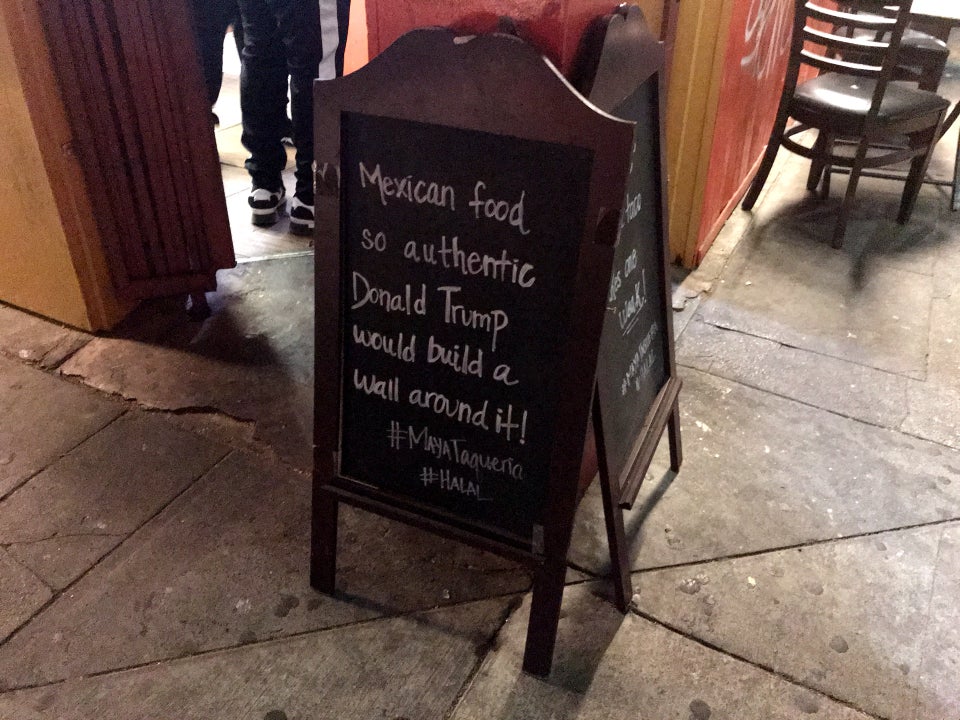 Mexican food
so authentic
Donald Trump
would build a
wall around it!
#MAYATaqueria
#HALAL
taco
one